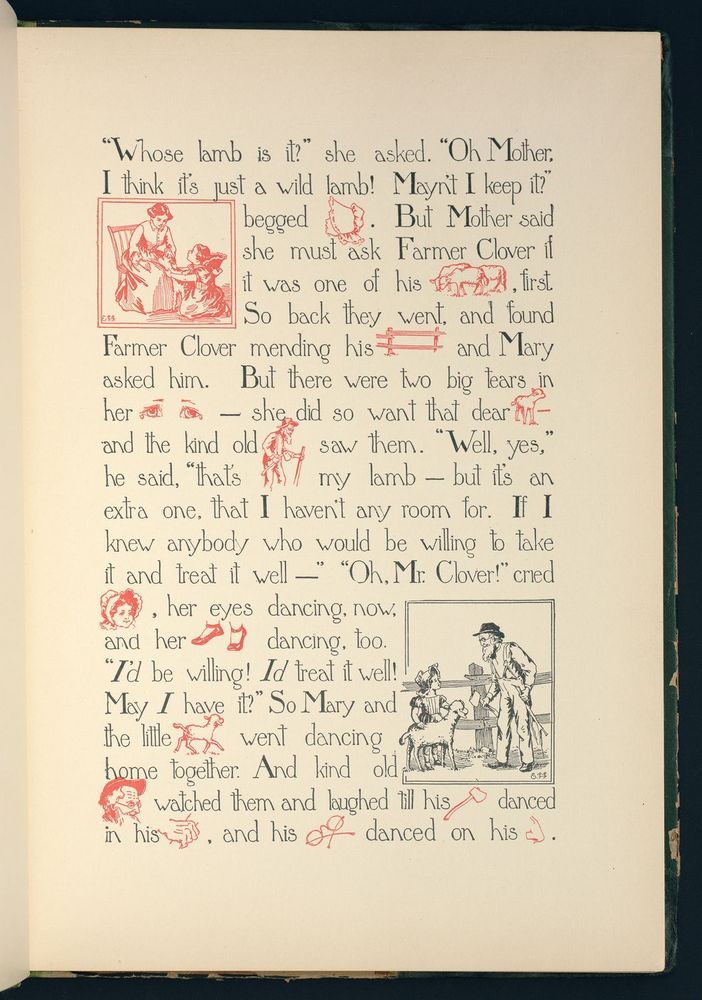 “Whose lamb is it?” she asked. “Oh Mother,
I think it's just a wild lamb! Mayn't I keep it?”
begged . But Mother said
she must ask Farmer Clover if
it was one of his , first.
So back they went, and found
Farmer Clover mending his and Mary
asked him. But there were two big tears in
her — she did so want that dear —
and the kind old saw them. “Well, yes,”
he said, “that's my lamb — but it's an
extra one, that I haven't any room for. If I
knew anybody who would be willing to take
it and treat it well —” “Oh, Mr. Clover!” cried
, her eyes dancing, now,
and her dancing, too.
“I'd be willing! I'd treat it well!
May I have it?” So Mary and
the little went dancing
home together. And kind old
watched them and laughed till his danced
in his , and his danced on his .
E.S.S.
E.S.S.